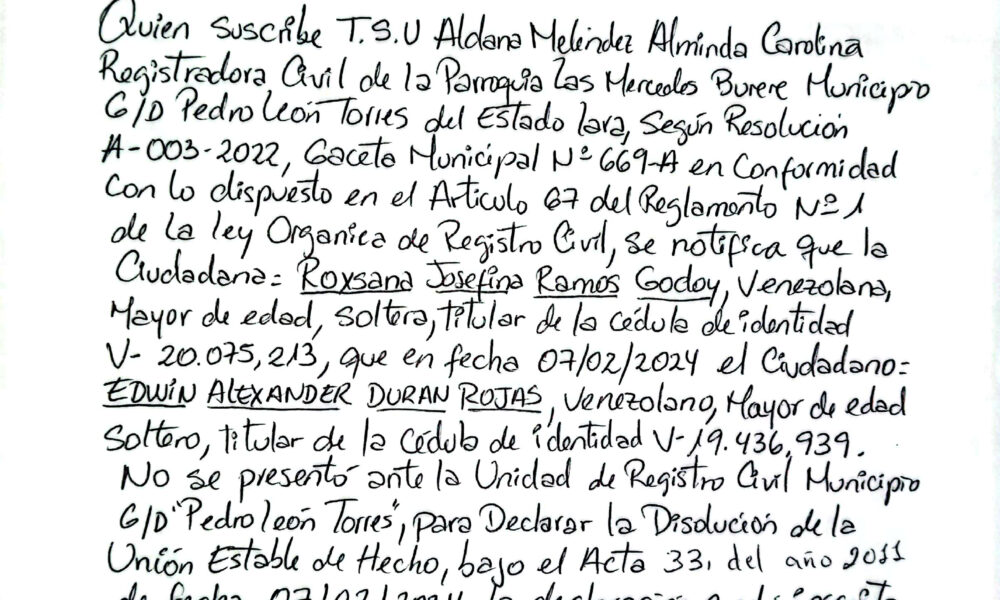 Quien suscribe T.S.U Aldana Meléndez Alminda Carolina
Registradora Civil de la Parroquia Las Mercedes Burere Municipio
G/D Pedro León Torres del Estado Lara, Según Resolución
A-003-2022, Gaceta Municipal Nº 669-A en Conformidad
Con lo dispuesto en el Articulo 67 del Reglamento Nº 1
de la ley Organica de Registro Civil, se notifica que la
Ciudadana: Roxsana Josefina Ramos Godoy, Venezolana,
Mayor de edad, Soltera, titular de la cédula de identidad
V- 20.075,213, que en fecha 07/02/2024 el Ciudadano:
EDWIN ALEXANDER DURAN ROJAS, Venezolano, Mayor de edad
Soltero, titular de la cédula de identidad V-19.436,939.
No se presentó ante la Unidad de Registro Civil Municipio
G/D "Pedro león Torres", para Declarar la Disolución de la
Unión Estable de Hecho, bajo el Acta 33, del año 2011
de fecha 07/02/2024